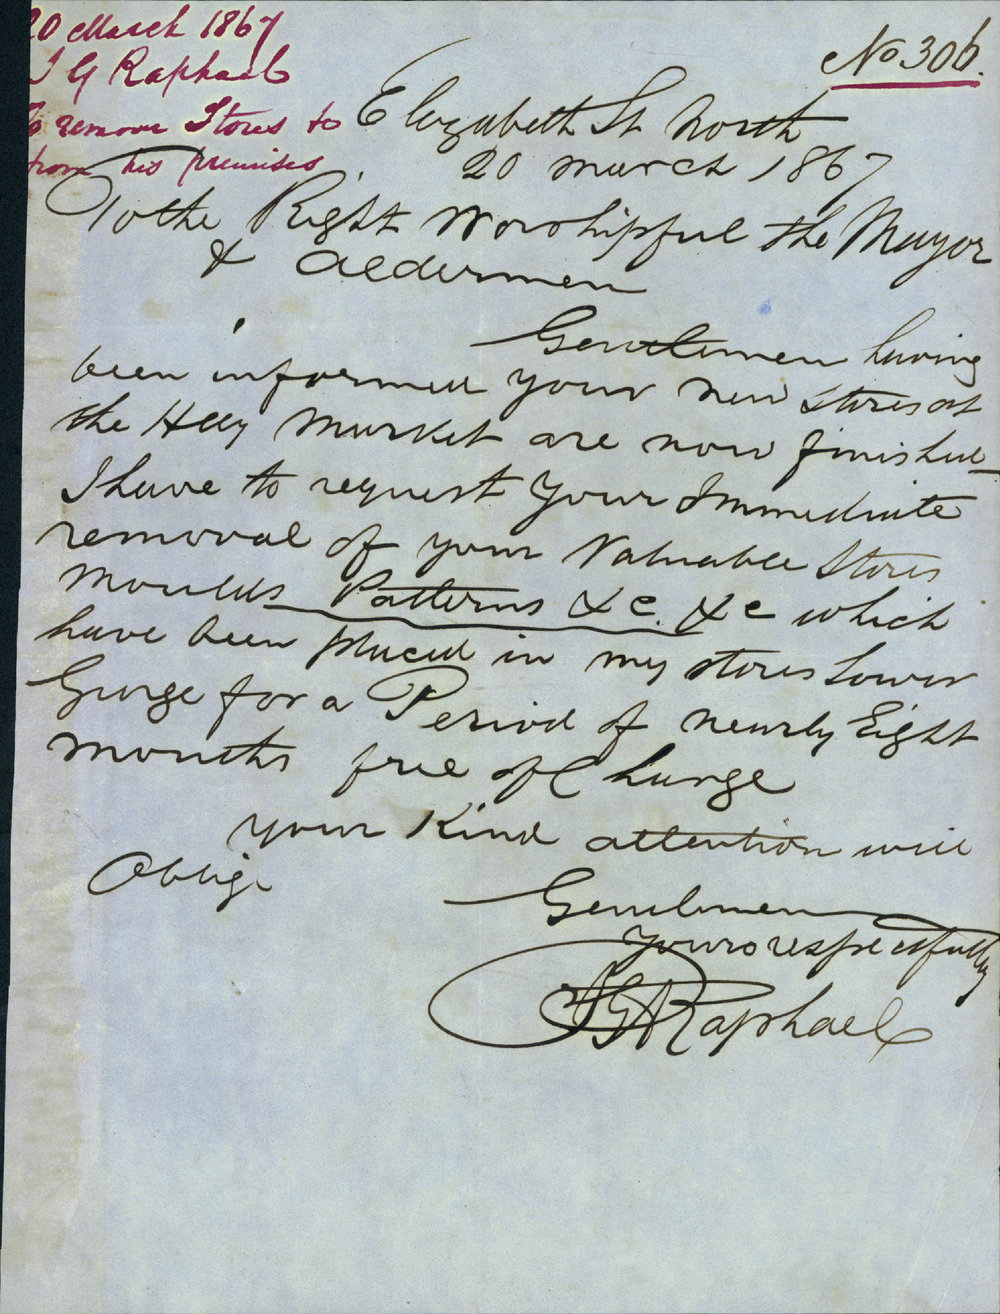 20 March 1867
J G Raphael
To remove Stores to
from his premises
No 306.
Elizabeth St North
20 March 1867
To the Right Worshipful the Mayor
& Aldermen
Gentlemen having
been informed your new Stores at
the Hay Market are now finished
I have to request your Immediate
removal of your Valuable Stores
Moulds Patterns &c. &c which
have been placed in my stores Lower
George for a Period of nearly Eight
months free of Charge
your Kind attention will
Oblige
Gentlemen
Yours respectfully
J G Raphael